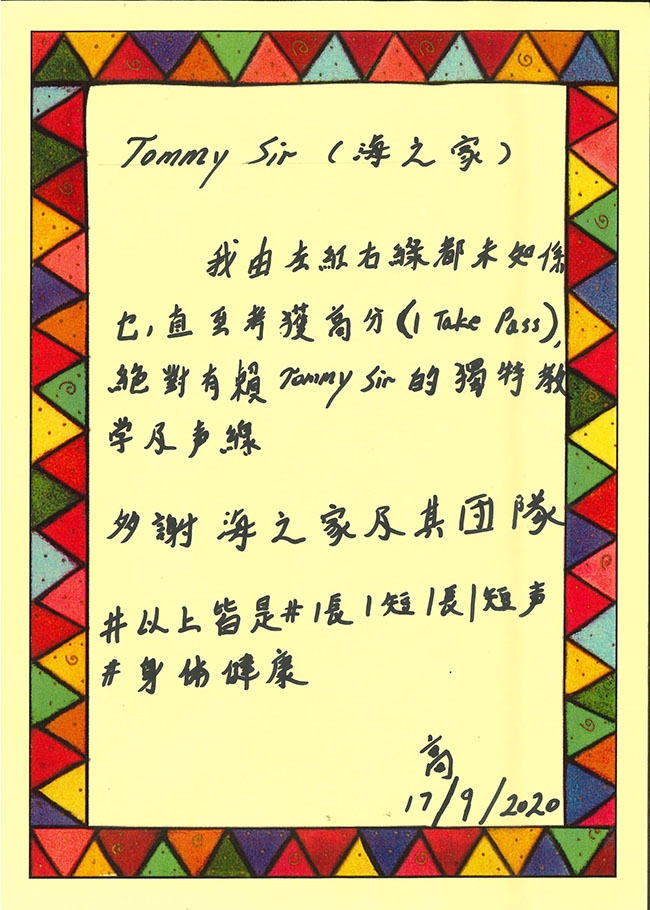 Tommy Sir (海之家)
我由左紅右綠都未知係
乜,直至考獲高分(1 Take Pass),
絕對有賴Tommy Sir的獨特教
学及声線
多謝海之家及其团隊
#以上皆是#1長1短1長1短声
#身体健康
高
17/9/2020